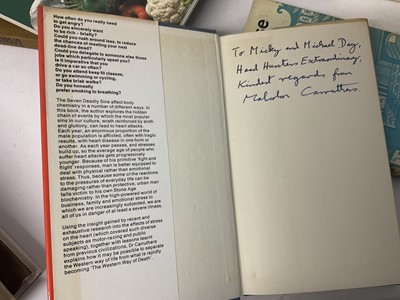 How often do you really need
to get angry?
Do you sincerely want
to be rich – briefly?
Could you rush around less, to reduce
the chances of meeting your next
dead-line dead?
Could you delegate to someone else those
jobs which particularly upset you?
Is it imperative that you
drive a car so often?
Do you attend keep fit classes,
or go swimming or cycling,
or take brisk walks?
Do you honestly
prefer smoking to breathing?
The Seven Deadly Sins affect body
chemistry in a number of different ways. In
this book, the author explores the hidden
chain of events by which the most popular
sins in our culture, wrath reinforced by sloth
and gluttony, can lead to heart attacks.
Each year, an enormous proportion of the
male population is afflicted, often with tragic
results, with heart disease in one form or
another. As each year passes, and stresses
build up, so the average age of people who
suffer heart attacks gets progressively
younger. Because of his primitive 'fight and
flight' responses, man is better equipped to
deal with physical rather than emotional
stress. Thus, because some of the reactions
to the pressures of everyday life can be
damaging rather than protective, urban man
falls victim to his own Stone Age
biochemistry. In the high-powered world of
business, family and emotional stress to
which we are increasingly subjected, we are
all of us in danger of at least a severe illness.
Using the insight gained by recent and
exhaustive research into the effects of stress
on the heart (which covered such diverse
subjects as motor-racing and public
speaking), together with lessons learnt
from previous civilizations, Dr Carruthers
explains how it may be possible to separate
the Western way of life from what is rapidly
becoming 'The Western Way of Death'.
To Micky and Michael Day,
Head Hunters Extraordinary,
Kindest regards from
Malcolm Carruthers